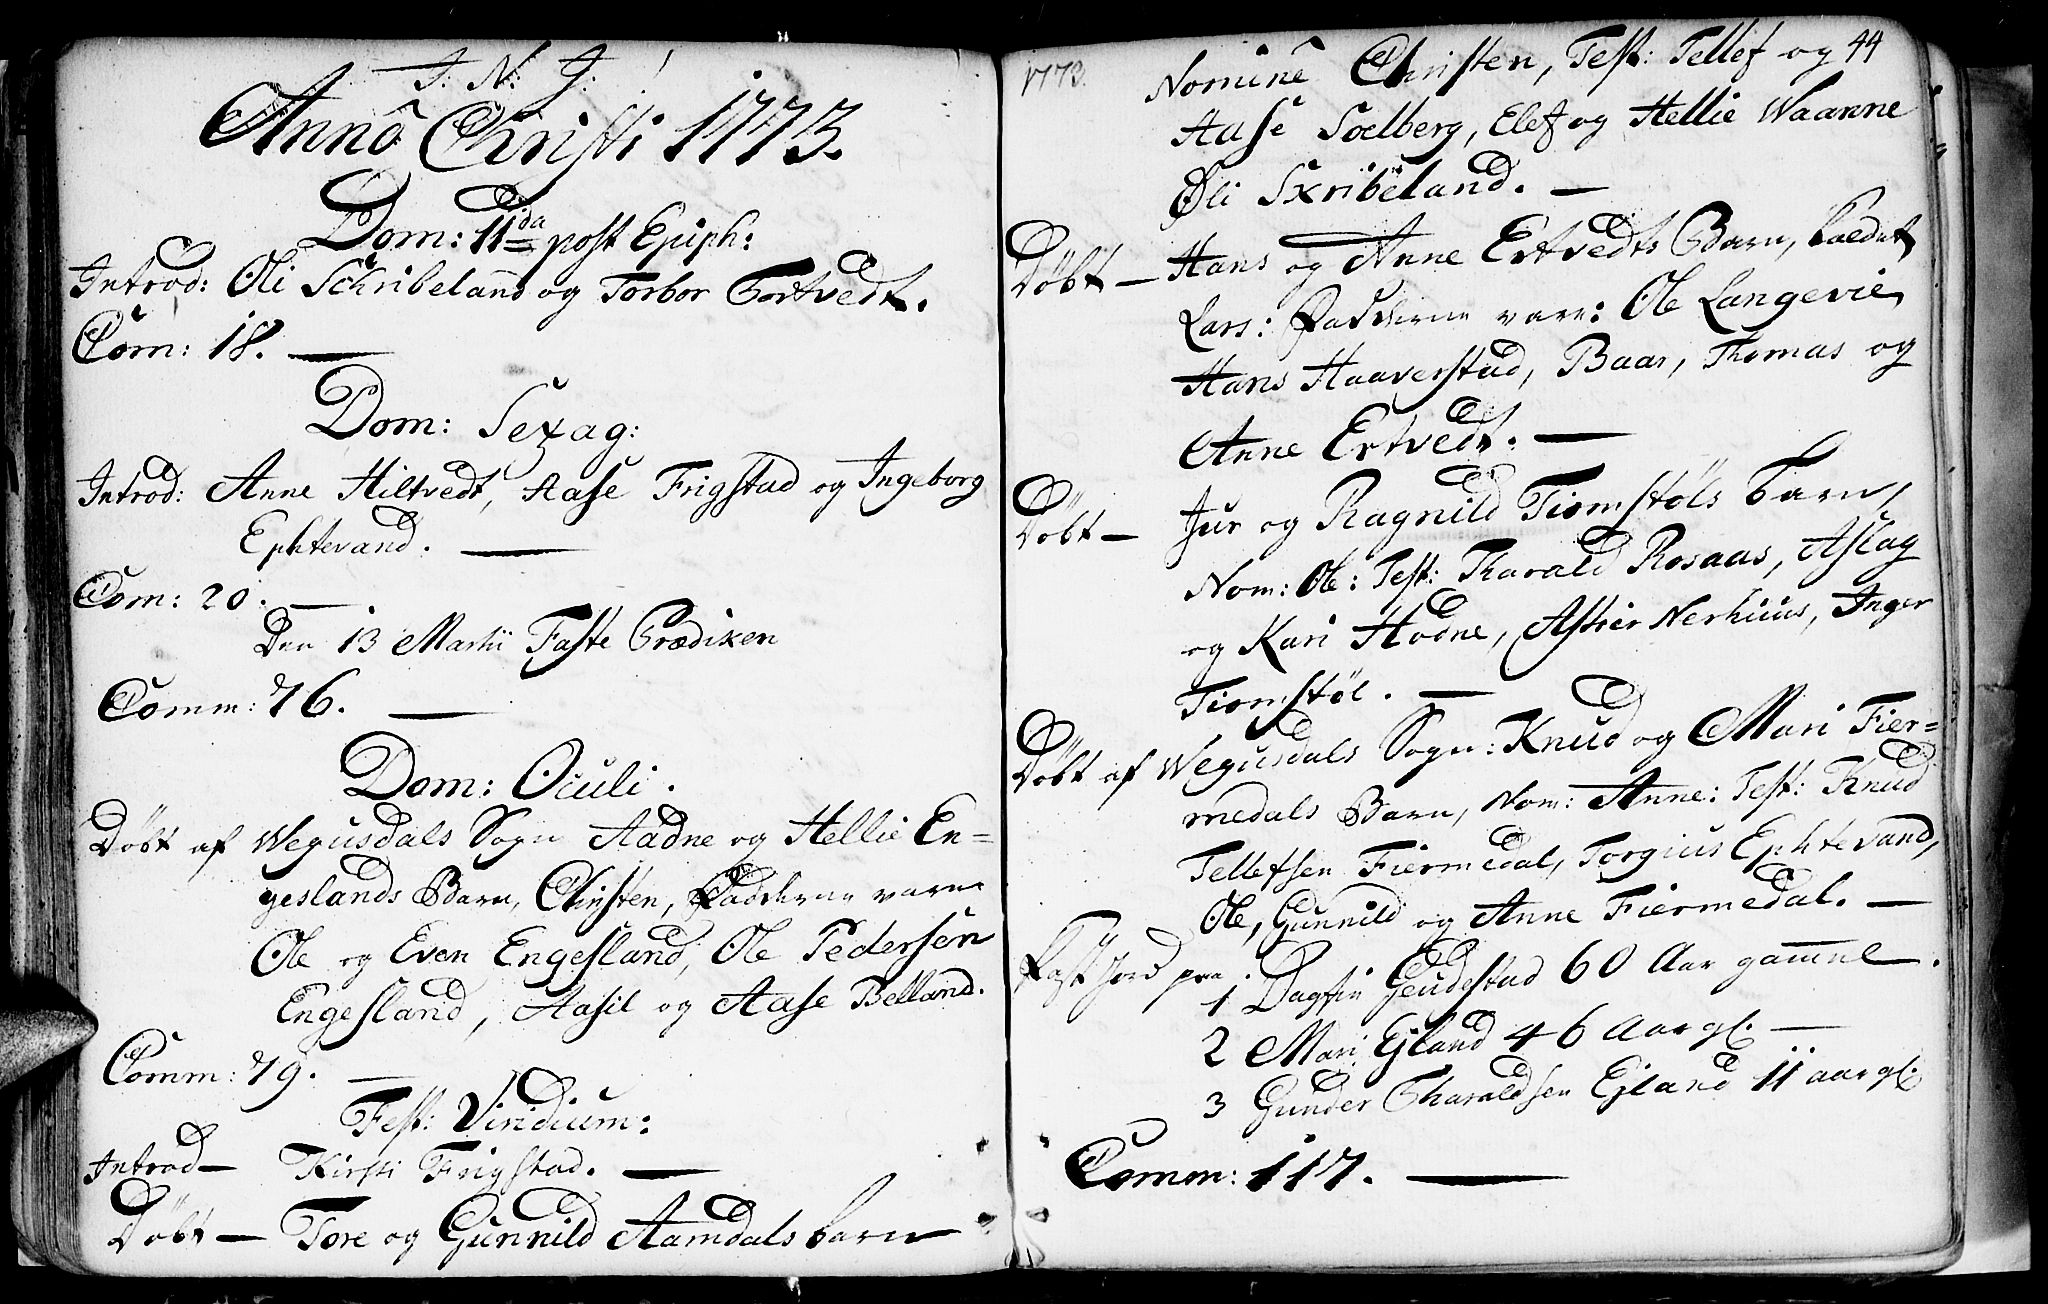 J: N: J:
Anno Christi 1773.
Dom: 11da post Epiph:
Introd: Oli Schribeland og Torbor Tortvedt.
Com: 18. —
Dom: Sexag:
Introd: Anne Hiltvedt, Aase Frigstad og Ingeborg
Ephtevand. —
Com: 20. —
Den 13 Martii Faste Prædiken
Comm: 76. —
Dom: Oculi.
Döbt af Wegusdals Sogn Aadne og Hellie En=
geslands Barn, Christen, Fadderne vare
Ole og Even Engesland, Ole Pedersen
Engesland, Aasil og Aase Belland.
Comm: 79. —
Fest: Viridium:
Introd — Kirsti Frigstad. —
Döbt — Tore og Gunnild Aamdals barn
1773.
Nomine Christen, Test: Tellef og 44
Aase Soelberg, Elef og Hellie Waanne
Oli Skribeland. —
Döbt — Hans og Anne Ertvedts Barn, kaldet
Lars: Fadderne vare: Ole Langevie,
Hans Haaverstad, Baar, Thomas og
Anne Ertvedt. —
Döbt — Jur og Ragnild Tiomstöls barn,
Nom: Ole: Test: Tharald Rosaas, Aslag
og Kari Hodne, Astier Nerhuus, Inger
Tiomstöl. —
Döbt af Wegusdals Sogn: Knud og Mari Fier=
medals Barn, Nom: Anne: Test: Knud
Tellefsen Fiermedal, Torgius Ephtevand,
Ole, Gunnild og Anne Fiermedal. —
Kast Jord paa. 1 Dagfin Geudestad 60 Aar gamel.
2 Mari Ejland 46 Aar gl. —
3 Gunder Tharaldsen Ejland 11 aar gl.
Comm: 117. —